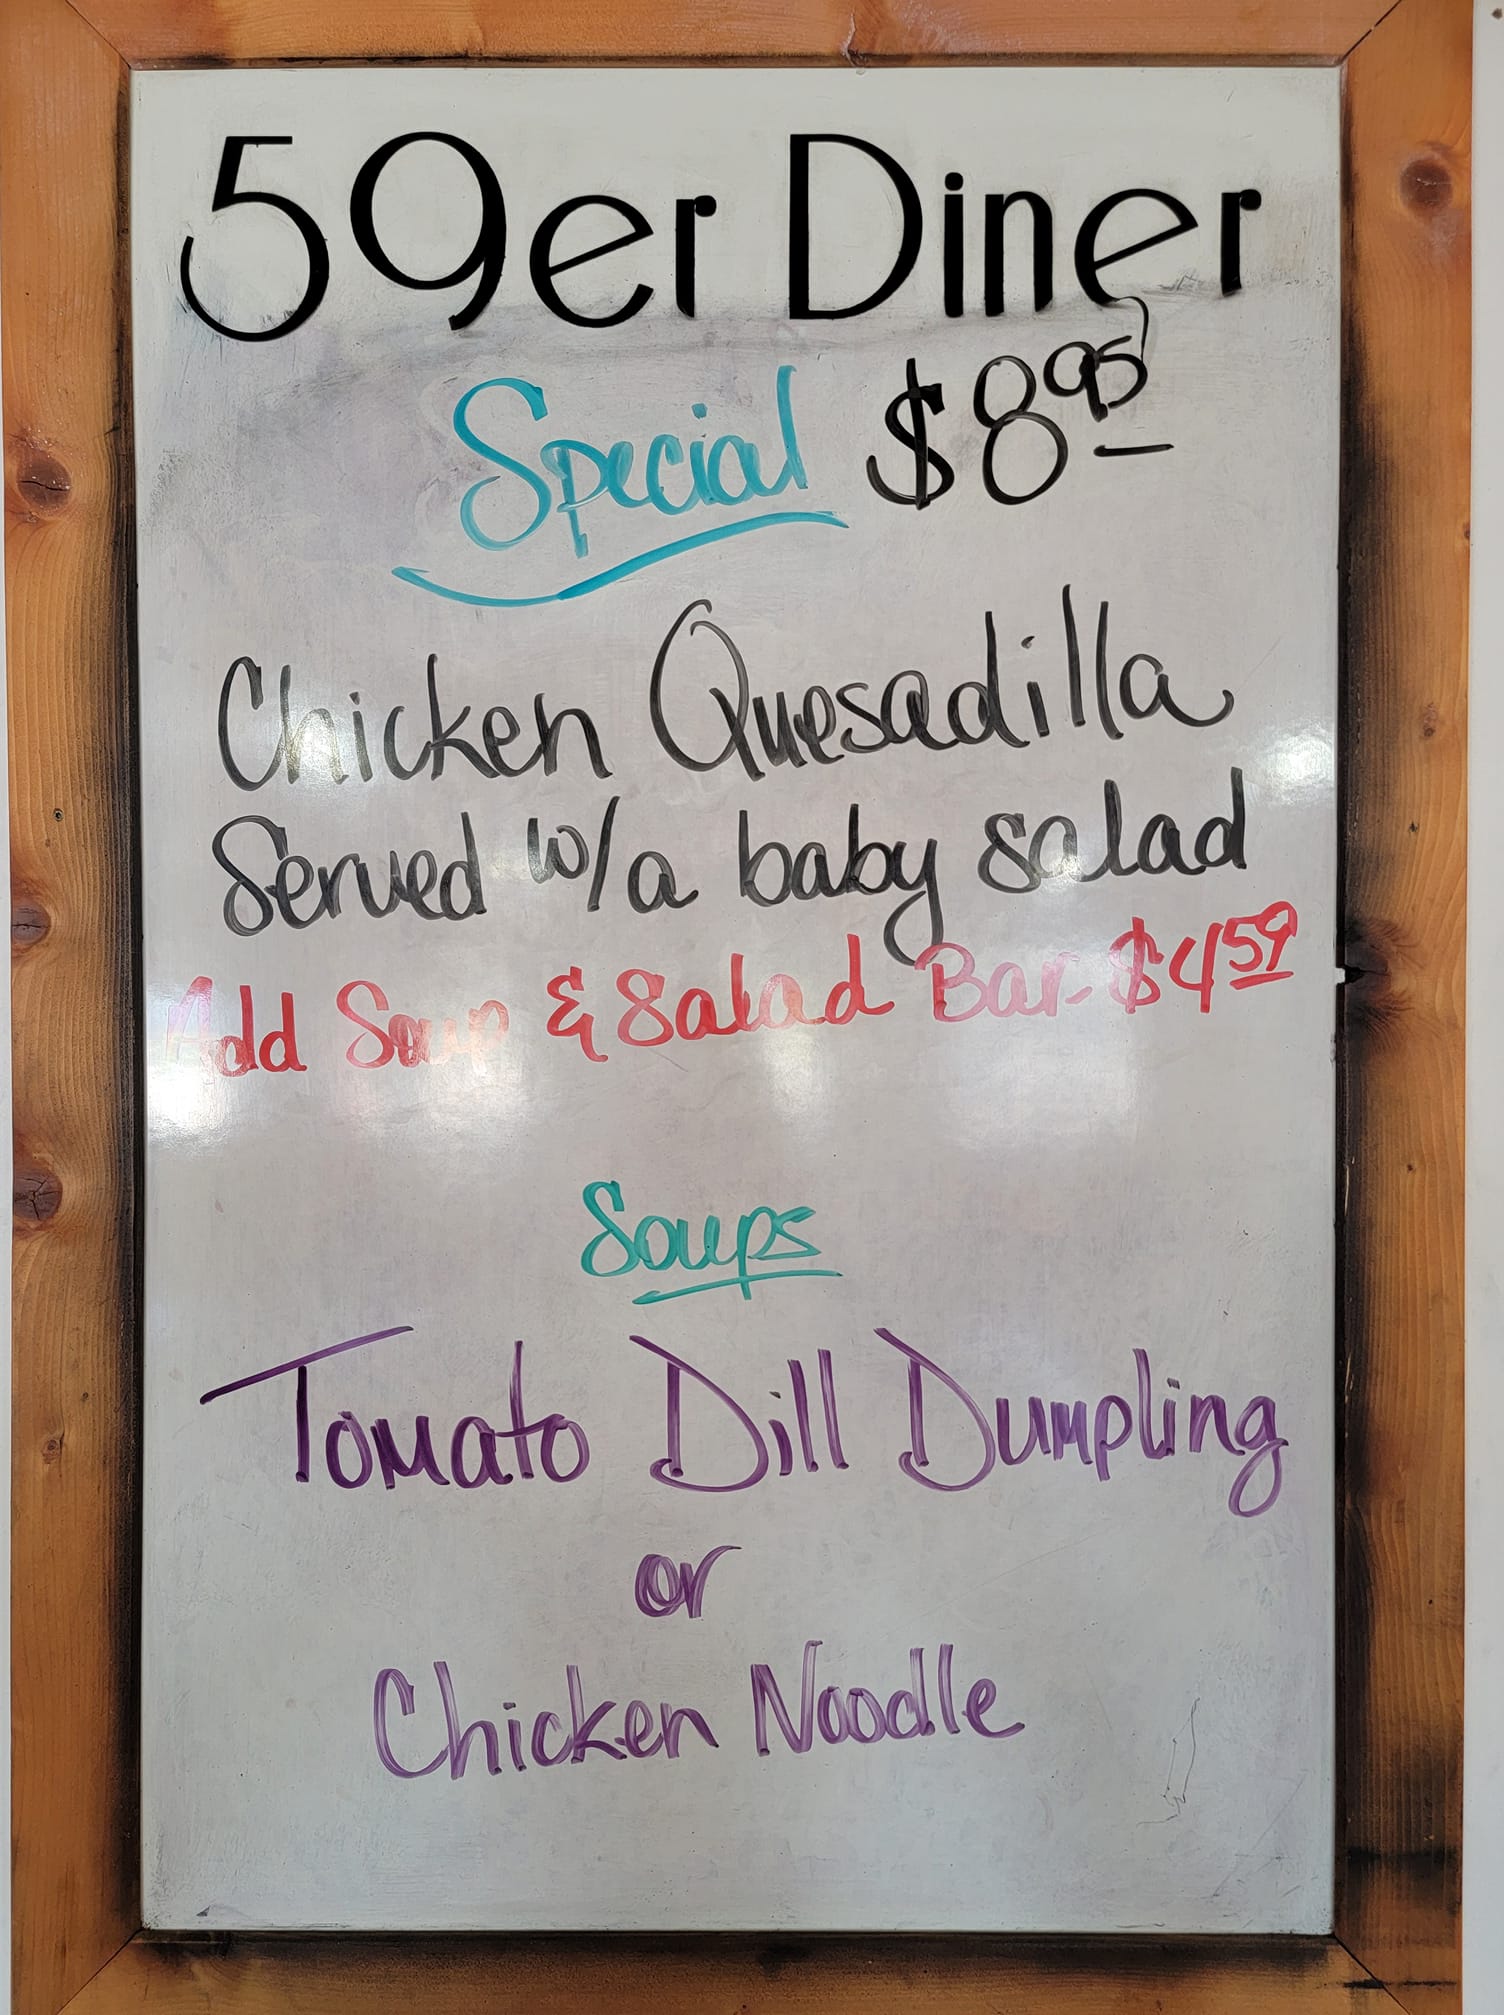 59er Diner
Special $8.95
Chicken Quesadilla
Served w/a baby salad
Add Soup & Salad Bar - $4.59
Soups
Tomato Dill Dumpling
or
Chicken Noodle